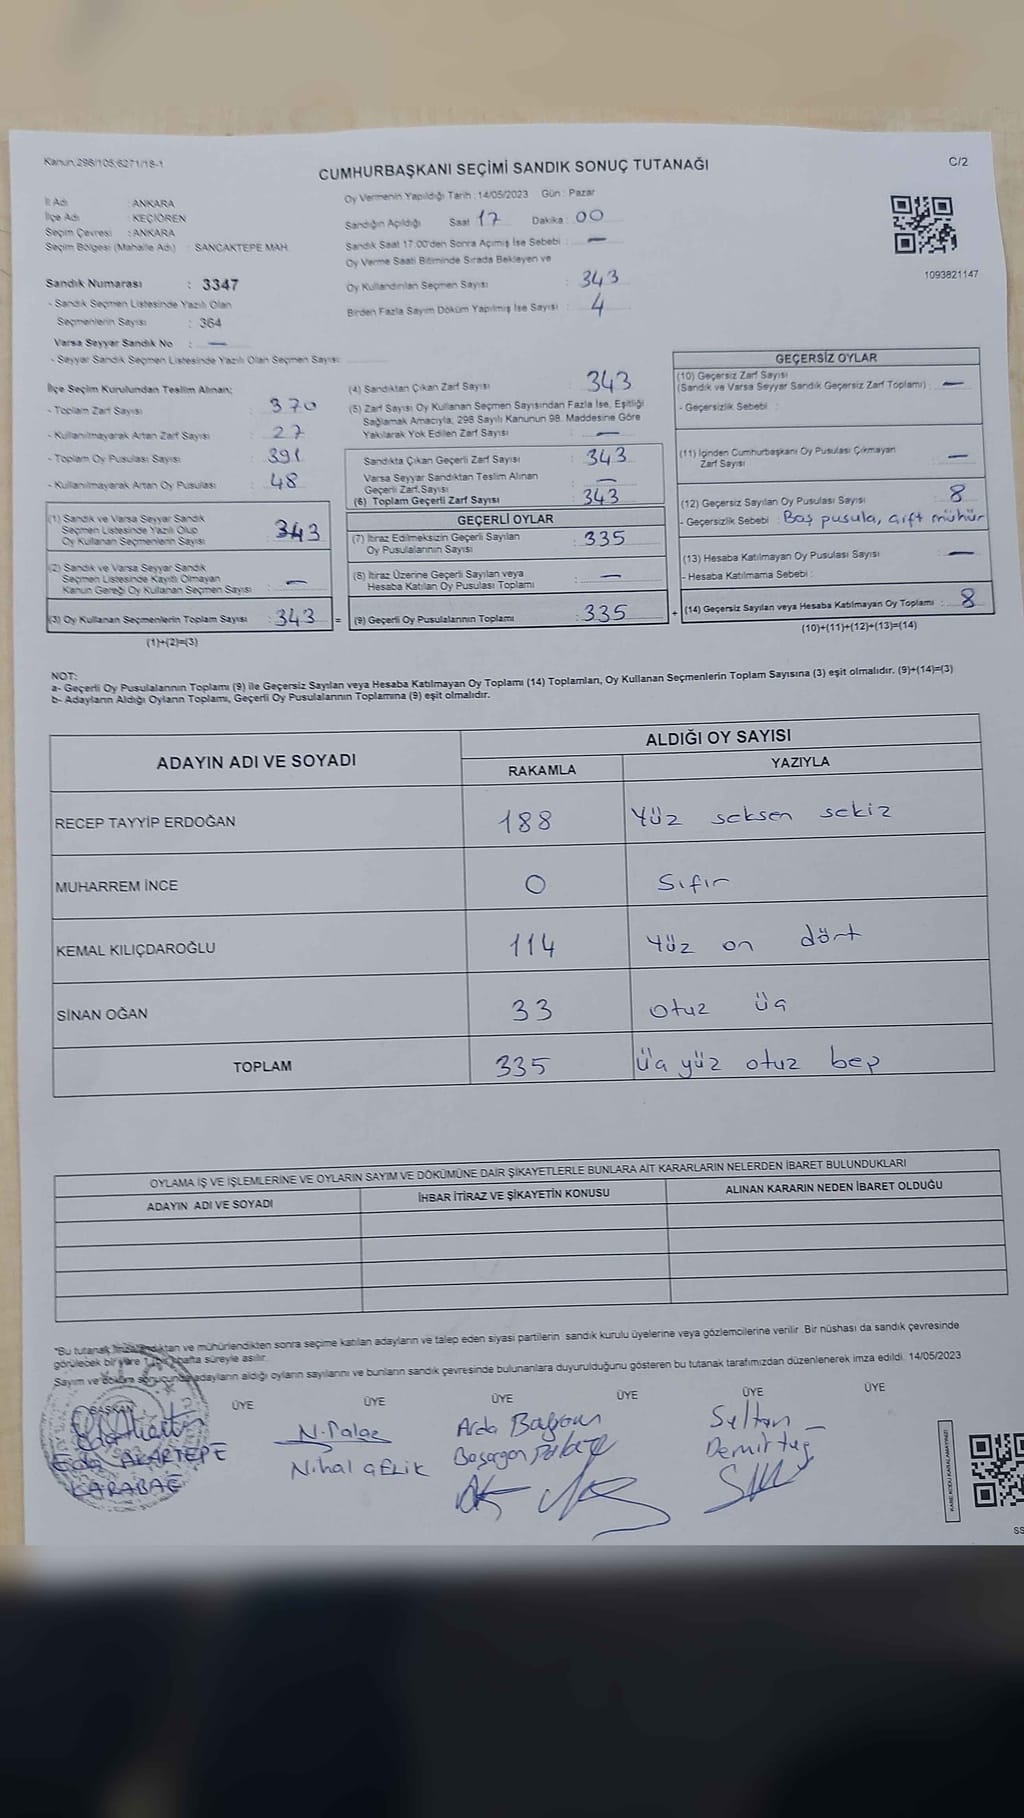 Kanun:298/105;6271/18-1
CUMHURBAŞKANI SEÇİMİ SANDIK SONUÇ TUTANAĞI
C/2
İl Adı : ANKARA
İlçe Adı : KEÇİÖREN
Seçim Çevresi : ANKARA
Seçim Bölgesi (Mahalle Adı) : SANCAKTEPE MAH.
Oy Vermenin Yapıldığı Tarih : 14/05/2023 Gün : Pazar
Sandığın Açıldığı Saat 17 Dakika : 00
Sandık Saat 17:00'den Sonra Açılmış İse Sebebi : —
Oy Verme Saati Bitiminde Sırada Bekleyen ve
Oy Kullandırılan Seçmen Sayısı : 343
Birden Fazla Sayım Döküm Yapılmış İse Sayısı : 4
1093821147
Sandık Numarası : 3347
- Sandık Seçmen Listesinde Yazılı Olan
Seçmenlerin Sayısı : 364
Varsa Seyyar Sandık No : —
- Seyyar Sandık Seçmen Listesinde Yazılı Olan Seçmen Sayısı:
İlçe Seçim Kurulundan Teslim Alınan;
- Toplam Zarf Sayısı : 370
- Kullanılmayarak Artan Zarf Sayısı : 27
- Toplam Oy Pusulası Sayısı : 391
- Kullanılmayarak Artan Oy Pusulası : 48
(1) Sandık ve Varsa Seyyar Sandık
Seçmen Listesinde Yazılı Olup
Oy Kullanan Seçmenlerin Sayısı : 343
(2) Sandık ve Varsa Seyyar Sandık
Seçmen Listesinde Kayıtlı Olmayan
Kanun Gereği Oy Kullanan Seçmen Sayısı : —
(3) Oy Kullanan Seçmenlerin Toplam Sayısı : 343 =
(1)+(2)=(3)
(4) Sandıktan Çıkan Zarf Sayısı : 343
(5) Zarf Sayısı Oy Kullanan Seçmen Sayısından Fazla İse, Eşitliği
Sağlamak Amacıyla, 298 Sayılı Kanunun 98. Maddesine Göre
Yakılarak Yok Edilen Zarf Sayısı : —
Sandıkta Çıkan Geçerli Zarf Sayısı : 343
Varsa Seyyar Sandıktan Teslim Alınan
Geçerli Zarf Sayısı : —
(6) Toplam Geçerli Zarf Sayısı : 343
GEÇERLİ OYLAR
(7) İtiraz Edilmeksizin Geçerli Sayılan
Oy Pusulalarının Sayısı : 335
(8) İtiraz Üzerine Geçerli Sayılan veya
Hesaba Katılan Oy Pusulası Toplamı : —
(9) Geçerli Oy Pusulalarının Toplamı : 335 +
GEÇERSİZ OYLAR
(10) Geçersiz Zarf Sayısı
(Sandık ve Varsa Seyyar Sandık Geçersiz Zarf Toplamı) : —
- Geçersizlik Sebebi :
(11) İçinden Cumhurbaşkanı Oy Pusulası Çıkmayan
Zarf Sayısı : —
(12) Geçersiz Sayılan Oy Pusulası Sayısı : 8
- Geçersizlik Sebebi : Boş pusula, çift mühür
(13) Hesaba Katılmayan Oy Pusulası Sayısı : —
- Hesaba Katılmama Sebebi :
(14) Geçersiz Sayılan veya Hesaba Katılmayan Oy Toplamı : 8
(10)+(11)+(12)+(13)=(14)
NOT:
a- Geçerli Oy Pusulalarının Toplamı (9) ile Geçersiz Sayılan veya Hesaba Katılmayan Oy Toplamı (14) Toplamları, Oy Kullanan Seçmenlerin Toplam Sayısına (3) eşit olmalıdır. (9)+(14)=(3)
b- Adayların Aldığı Oyların Toplamı, Geçerli Oy Pusulalarının Toplamına (9) eşit olmalıdır.
ADAYIN ADI VE SOYADI ALDIĞI OY SAYISI
RAKAMLA YAZIYLA
RECEP TAYYİP ERDOĞAN 188 Yüz seksen sekiz
MUHARREM İNCE 0 Sıfır
KEMAL KILIÇDAROĞLU 114 Yüz on dört
SİNAN OĞAN 33 otuz üç
TOPLAM 335 üç yüz otuz beş
OYLAMA İŞ VE İŞLEMLERİNE VE OYLARIN SAYIM VE DÖKÜMÜNE DAİR ŞİKAYETLERLE BUNLARA AİT KARARLARIN NELERDEN İBARET BULUNDUKLARI
ADAYIN ADI VE SOYADI İHBAR İTİRAZ VE ŞİKAYETİN KONUSU ALINAN KARARIN NEDEN İBARET OLDUĞU
*Bu tutanak imzalandıktan ve mühürlendikten sonra seçime katılan adayların ve talep eden siyasi partilerin sandık kurulu üyelerine veya gözlemcilerine verilir. Bir nüshası da sandık çevresinde
görülecek bir yere 1 hafta süreyle asılır.
Sayım ve döküm sonucunda adayların aldığı oyların sayılarını ve bunların sandık çevresinde bulunanlara duyurulduğunu gösteren bu tutanak tarafımızdan düzenlenerek imza edildi. 14/05/2023
BAŞKAN ÜYE ÜYE ÜYE ÜYE ÜYE ÜYE
Eda AKARTEPE
KARABAĞ
Nihal ÇELİK
Arda
Sultan
Demirtaş